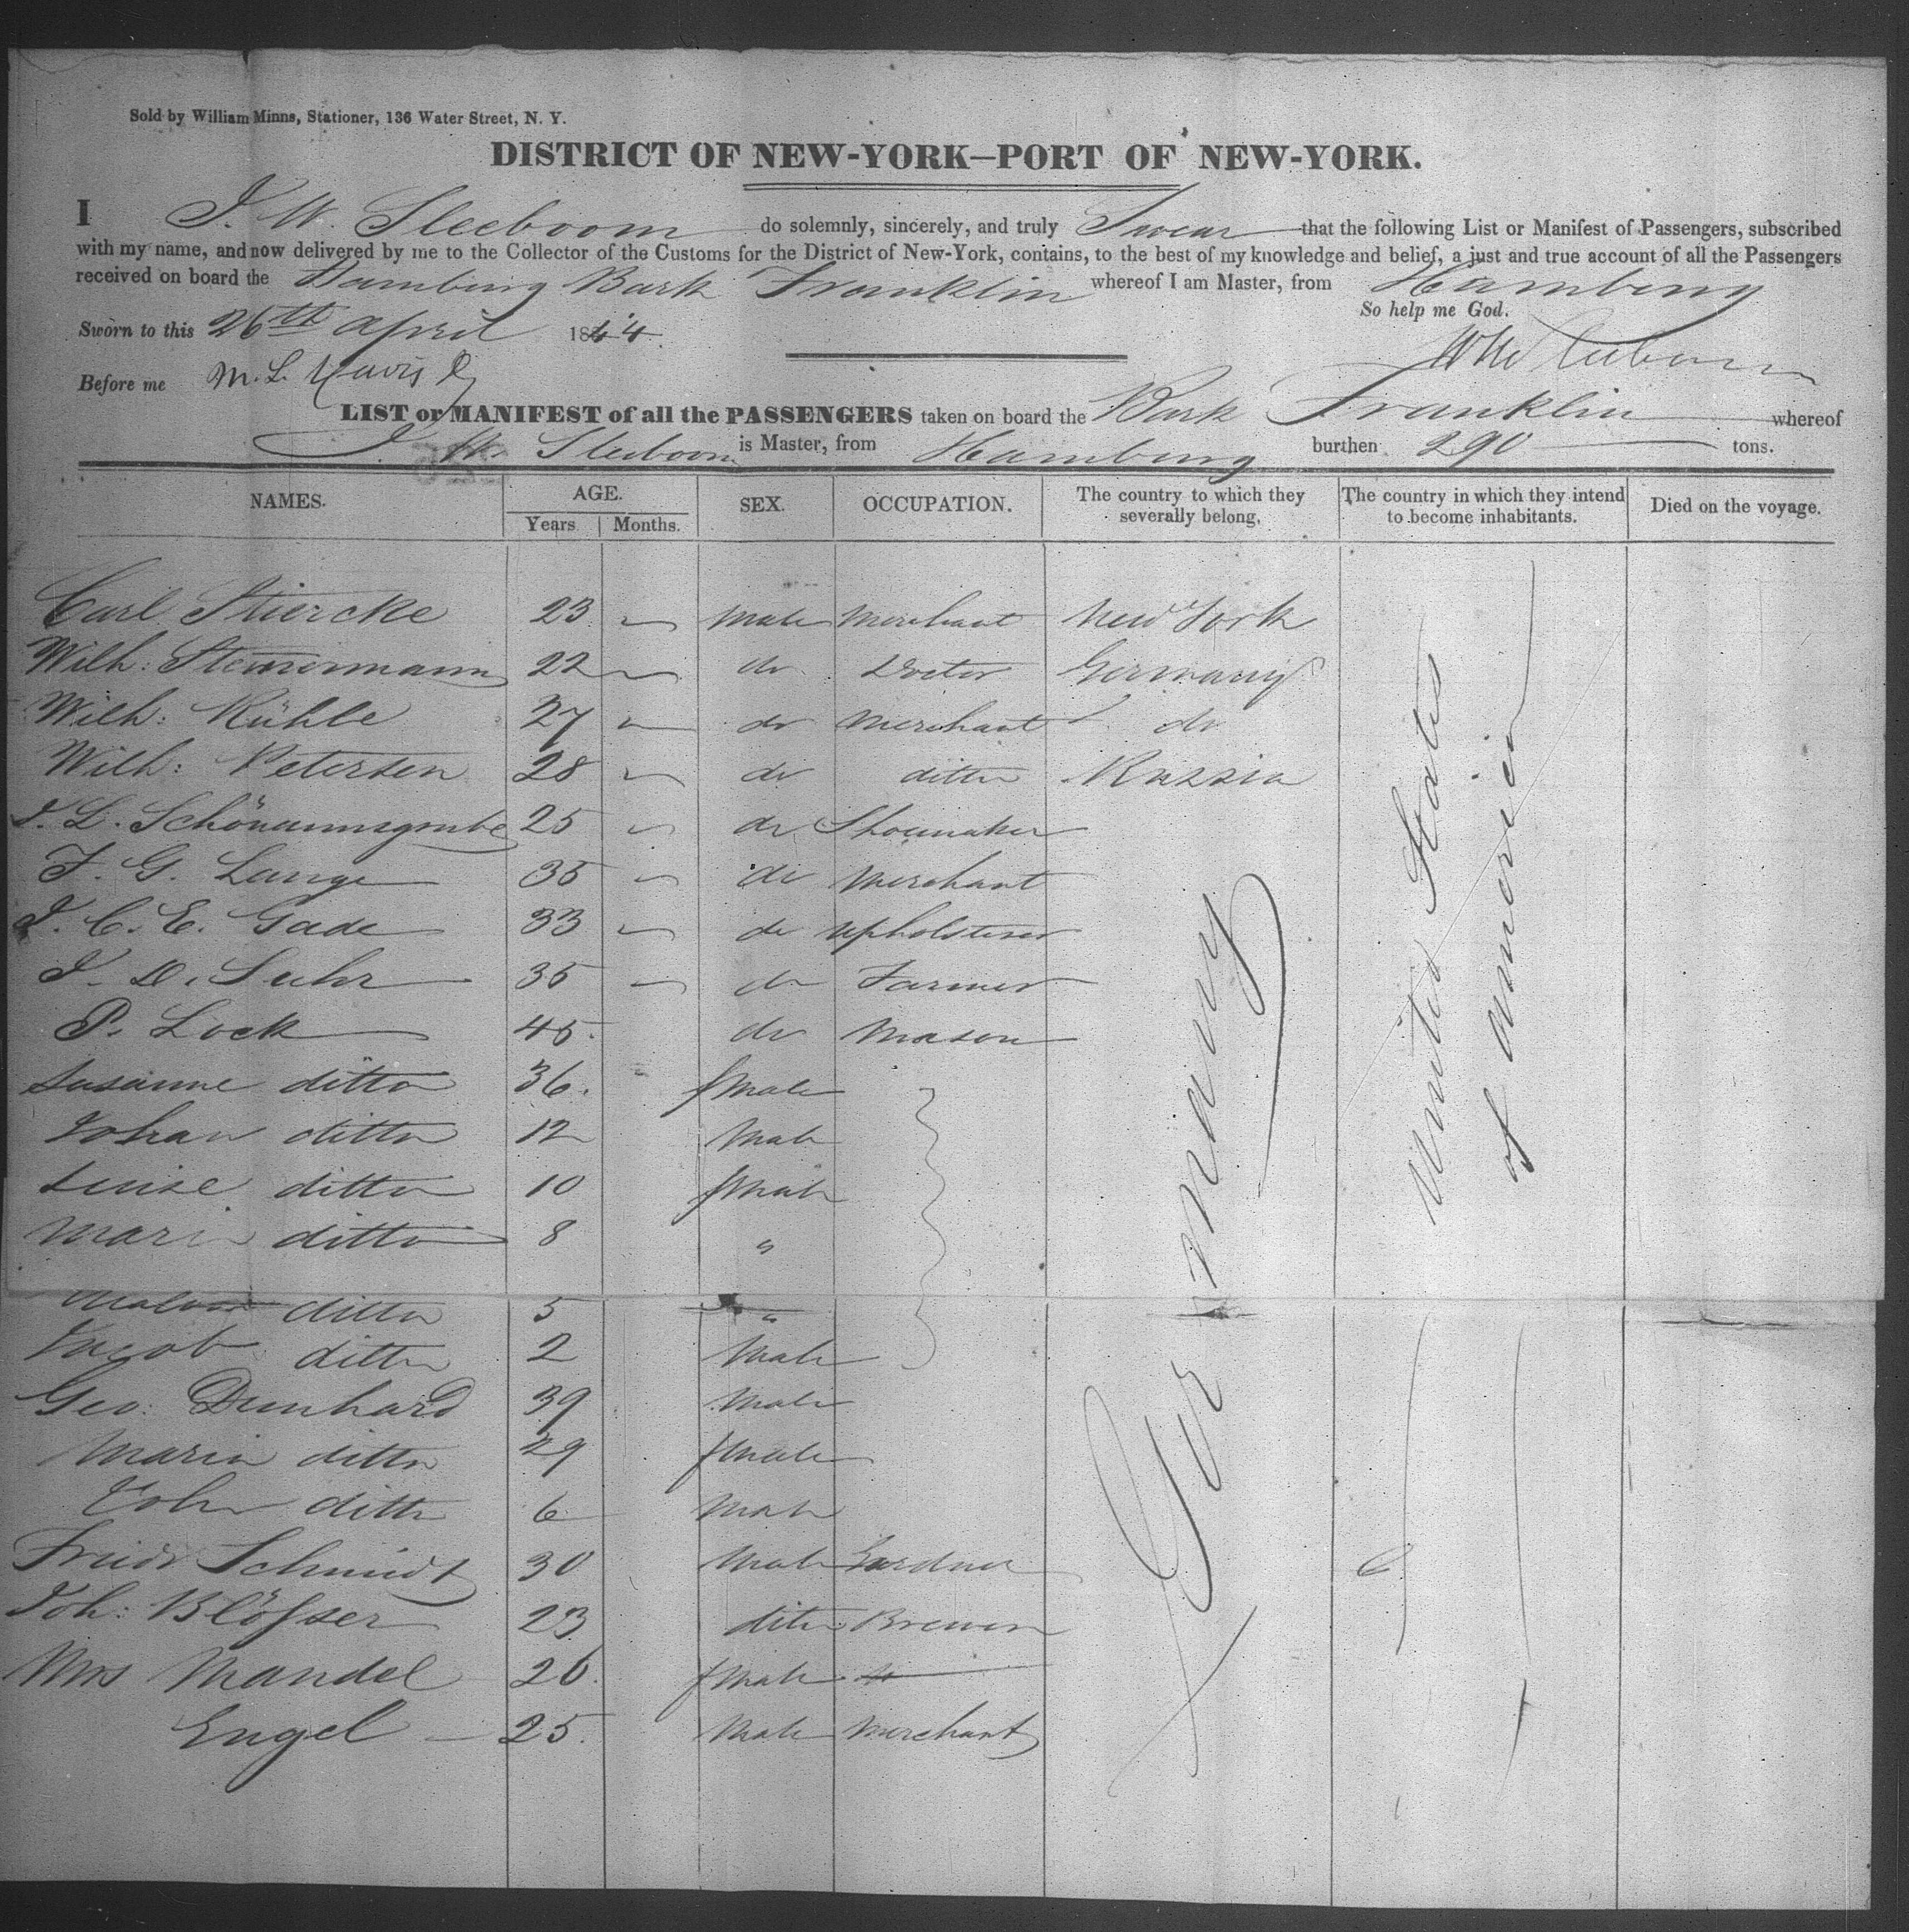 Sold by William Minns, Stationer, 136 Water Street, N. Y.
DISTRICT OF NEW-YORK—PORT OF NEW-YORK.
I J. W. Sleeboom do solemnly, sincerely, and truly Swear that the following List or Manifest of Passengers, subscribed
with my name, and now delivered by me to the Collector of the Customs for the District of New-York, contains, to the best of my knowledge and belief, a just and true account of all the Passengers
received on board the Hamburg Bark Franklin whereof I am Master, from Hamburg
So help me God.
Sworn to this 26th April 1844.
Before me M. L. Davis
LIST or MANIFEST of all the PASSENGERS taken on board the Bark Franklin whereof
J. W. Sleeboom is Master, from Hamburg burthen 290 tons.
NAMES. AGE. Years Months. SEX. OCCUPATION. The country to which they severally belong. The country in which they intend to become inhabitants. Died on the voyage.
Carl Stiercke 23 Male Merchant New York
Wilh: 22 do Doctor Germany
Wilh: Kühle 27 do Merchant do
Wilh: Petersen 28 do ditto Russia
J. L. 25 do Shoemaker
F. G. Lange 35 do Merchant
J. C. E. Gade 33 do upholsterer
J. D. Suhr 35 do Farmer
P. Lock 45. do Mason
Susanne ditto 36. fmale
Johan ditto 12 Male
Luise ditto 10 fmale
Maria ditto 8 "
ditto 5 "
Jacob ditto 2 Male
Geo: Denhard 39 Male
Maria ditto 29 fmale
John ditto 6 Male
Friedr Schmidt 30 Male Gardner
Joh: Blöfser 23 ditto Brewer
Mrs Mandel 26. fmale
Engel 25. Male Merchant
Germany
United States
of America